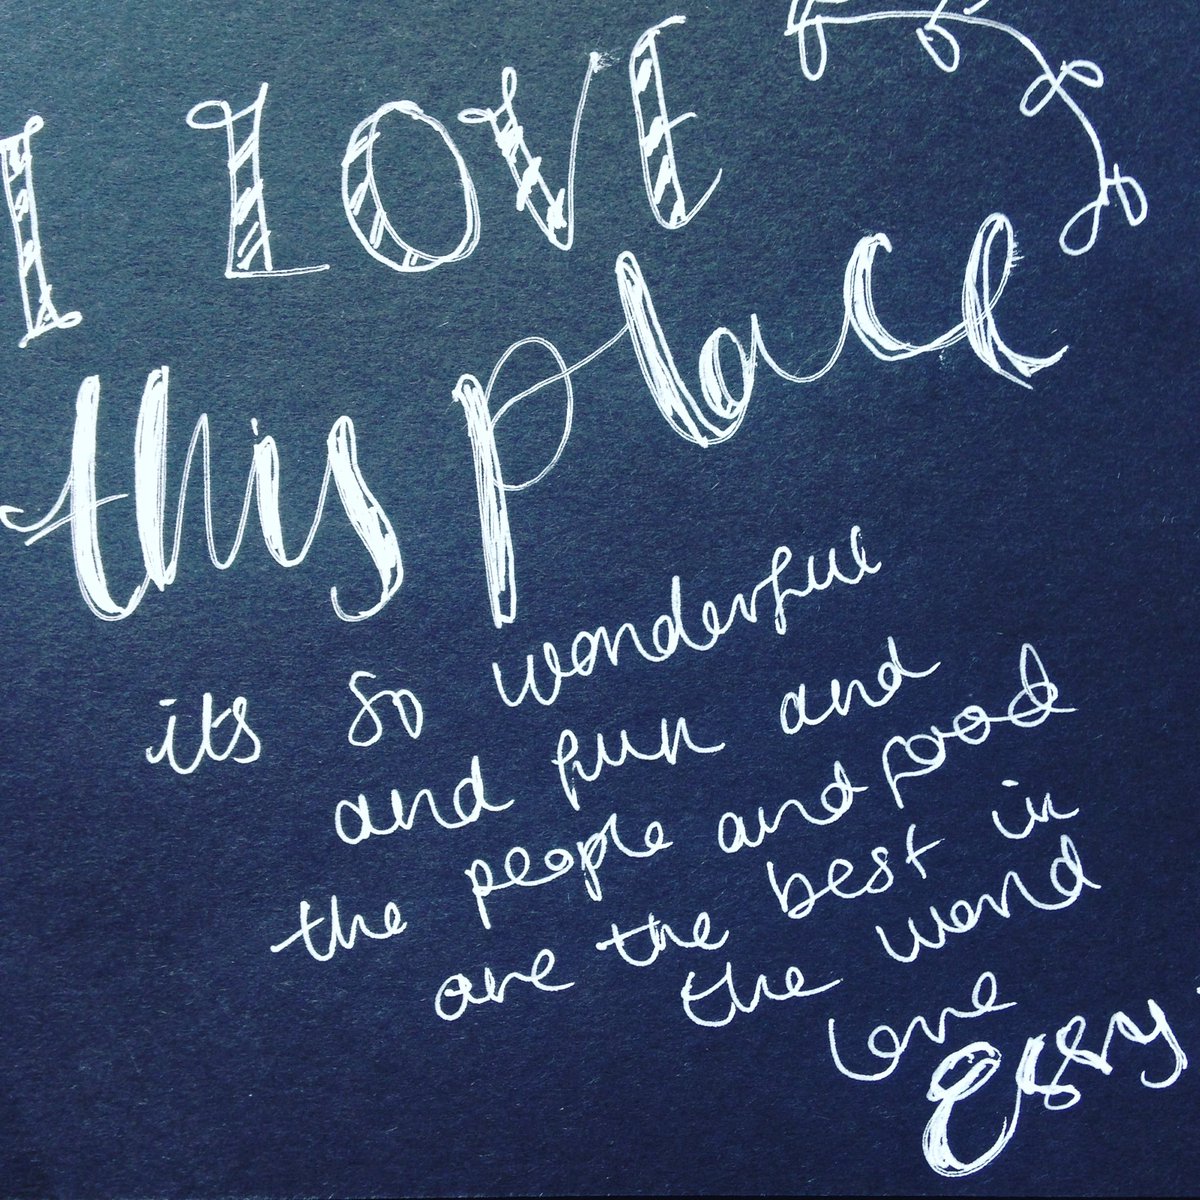 I LOVE
this place
its so wonderful
and fun and
the people and food
are the best in
the world
love
Essy